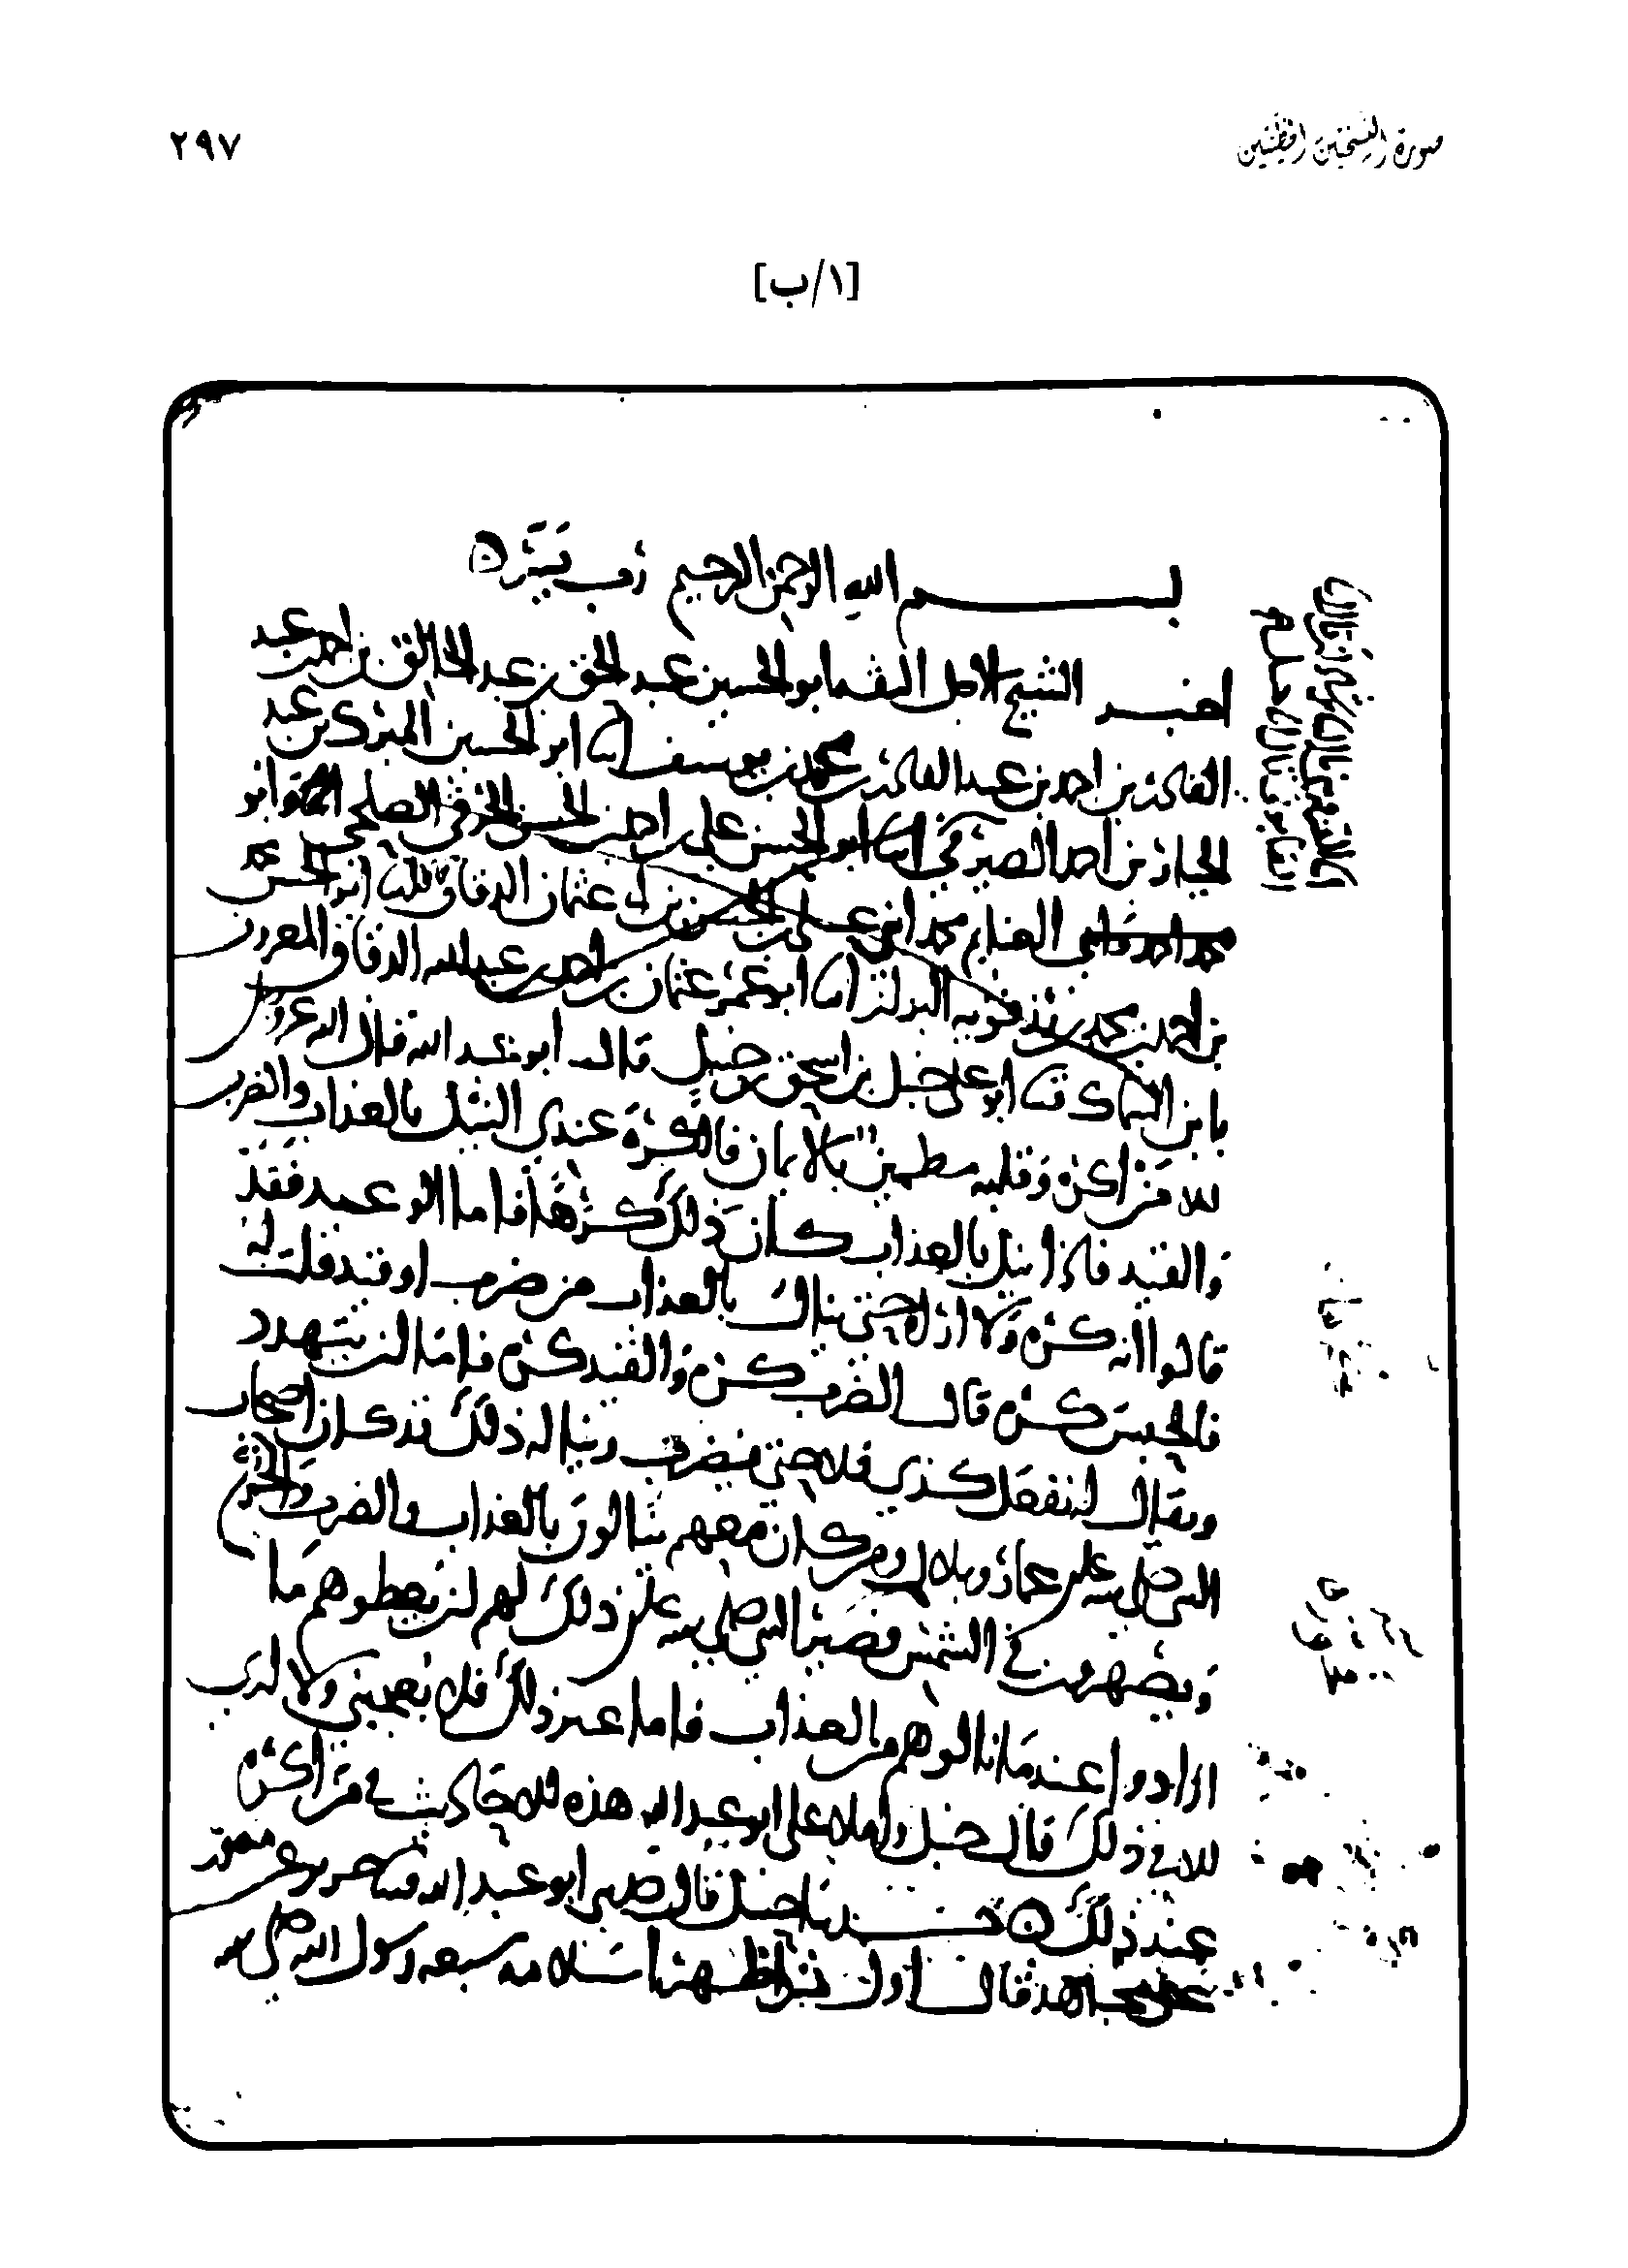 صورة النسختين الخطيتين
٢٩٧
[١/ب]
بسم الله الرحمن الرحيم رب يسر
اخبرنا الشيخ الاجل الثقة ابو الحسين عبد الحق بن عبد الخالق بن احمد بن عبد
القادر بن احمد بن عبد القادر بن محمد بن يوسف انا ابو الحسين المبرك بن عبد
الجبار بن احمد الصيرفي انا ابو الحسن علي بن احمد بن الحسن الحرقي الصلحي وابو
الغنايم محمد بن علي بن الحسن بن ابي عثمان الدقاق قالا انا ابو الحسن محمد
بن احمد بن محمد بن رزقويه البزاز انا ابو عمر عثمان بن احمد بن عبد الله الدقاق المعروف
بابن السماك ثنا ابو علي حنبل بن اسحق بن حنبل قال ابو عبد الله قال الله عز وجل
الا من اكره وقلبه مطمئن بالايمان فالكره عندي النيل بالعذاب والضرب
والقيد فاذا نيل بالعذاب كان ذلك كرها فاما الوعيد فقد
قالوا انه كره ولا اراه حتى ينال بالعذاب من ضرب او قيد قلت له
فالحبس كره قال الضرب كره والقيد كره فاما ان يتهدد
ويقال لنفعلن كذي فلا حتى يضرب وينال ذلك قد كان اصحاب
النبي صلى الله عليه عمار وبلال ومن كان معهم ينالون بالعذاب والضرب والحر
ويصهرون في الشمس فصبر النبي صلى الله عليه ذلك لهم ان يعطوهم ما
ارادوا عند ما نالوهم من العذاب فاما عند ذلك فلا يعجبني ولا ارى
الا في ذلك قال حنبل واملاه علي ابو عبد الله هذه الاحاديث في من اكره
عند ذلك حدثنا حنبل قال حدثني ابو عبد الله ثنا جرير عن منصور
عن مجاهد قال اول من اظهر اسلامه سبعة رسول الله صلى الله